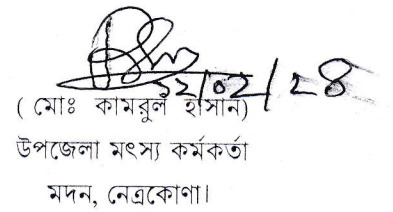 ১২/০২/২৪
( মোঃ কামরুল হাসান)
উপজেলা মৎস্য কর্মকর্তা
মদন, নেত্রকোণা।